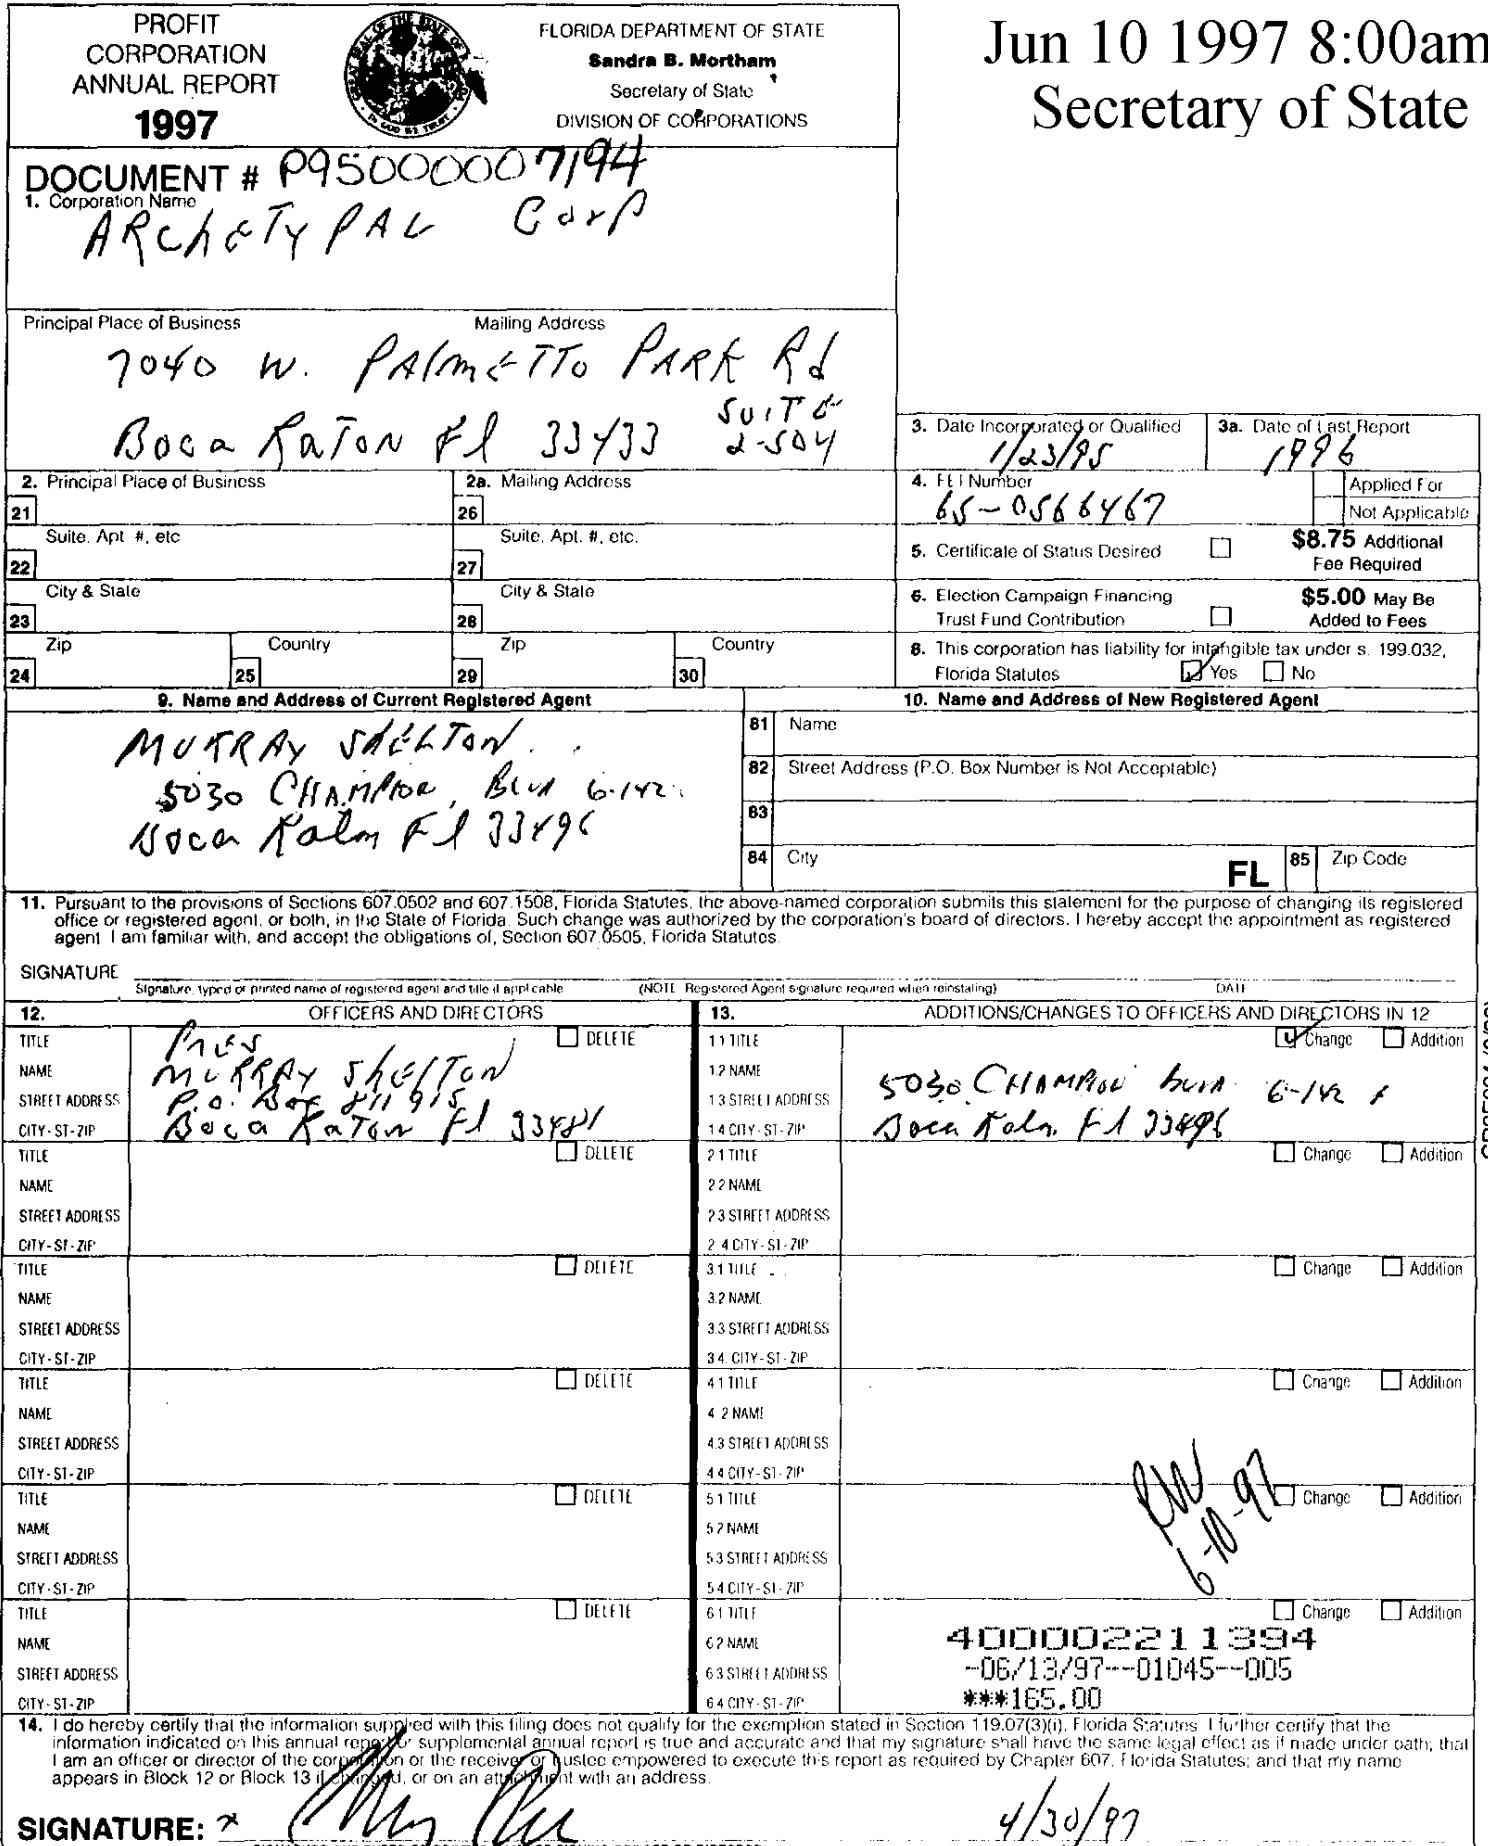 PROFIT
CORPORATION
ANNUAL REPORT
1997
FLORIDA DEPARTMENT OF STATE
Sandra B. Mortham
Secretary of State
DIVISION OF CORPORATIONS
Jun 10 1997 8:00am
Secretary of State
DOCUMENT # P95000007194
1. Corporation Name
ARchETYPAL Corp
Principal Place of Business Mailing Address
7040 W. PAlmETTo PARK Rd
SUITE
Boca RaTon Fl 33433 2-504
3. Date Incorporated or Qualified
1/23/95
3a. Date of Last Report
1996
2. Principal Place of Business
21
2a. Mailing Address
26
4. FEI Number
65-0566467
Applied For
Not Applicable
Suite, Apt #, etc
22
Suite, Apt. #, etc.
27
5. Certificate of Status Desired
$8.75 Additional
Fee Required
City & State
23
City & State
28
6. Election Campaign Financing
Trust Fund Contribution
$5.00 May Be
Added to Fees
Zip
24
Country
25
Zip
29
Country
30
8. This corporation has liability for intangible tax under s. 199.032,
Florida Statutes Yes No
9. Name and Address of Current Registered Agent
MURRAY SHELTON
5030 CHAMPION Blvd 6-142
Boca Raton Fl 33496
10. Name and Address of New Registered Agent
81 Name
82 Street Address (P.O. Box Number is Not Acceptable)
83
84 City FL 85 Zip Code
11. Pursuant to the provisions of Sections 607.0502 and 607.1508, Florida Statutes, the above-named corporation submits this statement for the purpose of changing its registered
office or registered agent, or both, in the State of Florida. Such change was authorized by the corporation's board of directors. I hereby accept the appointment as registered
agent I am familiar with, and accept the obligations of, Section 607.0505, Florida Statutes.
SIGNATURE
Signature, typed or printed name of registered agent and title if applicable (NOTE Registered Agent signature required when reinstating) DATE
12. OFFICERS AND DIRECTORS
13. ADDITIONS/CHANGES TO OFFICERS AND DIRECTORS IN 12
TITLE Pres DELETE
NAME MURRAY ShelTon
STREET ADDRESS P.O. Box 811915
CITY-ST-ZIP Boca RaTon Fl 33481
1.1 TITLE Change Addition
1.2 NAME
1.3 STREET ADDRESS 5030 CHAMPION Blvd 6-142
1.4 CITY-ST-ZIP Boca Raton Fl 33496
TITLE DELETE
NAME
STREET ADDRESS
CITY-ST-ZIP
2.1 TITLE Change Addition
2.2 NAME
2.3 STREET ADDRESS
2.4 CITY-ST-ZIP
TITLE DELETE
NAME
STREET ADDRESS
CITY-ST-ZIP
3.1 TITLE Change Addition
3.2 NAME
3.3 STREET ADDRESS
3.4. CITY-ST-ZIP
TITLE DELETE
NAME
STREET ADDRESS
CITY-ST-ZIP
4.1 TITLE Change Addition
4.2 NAME
4.3 STREET ADDRESS
4.4 CITY-ST-ZIP
TITLE DELETE
NAME
STREET ADDRESS
CITY-ST-ZIP
5.1 TITLE Change Addition
5.2 NAME
5.3 STREET ADDRESS
5.4 CITY-ST-ZIP
RW
6-10-97
TITLE DELETE
NAME
STREET ADDRESS
CITY-ST-ZIP
6.1 TITLE Change Addition
6.2 NAME
6.3 STREET ADDRESS
6.4 CITY-ST-ZIP
400002211394
-06/13/97--01045--005
***165.00
14. I do hereby certify that the information supplied with this filing does not qualify for the exemption stated in Section 119.07(3)(i), Florida Statutes. I further certify that the
information indicated on this annual report or supplemental annual report is true and accurate and that my signature shall have the same legal effect as if made under oath; that
I am an officer or director of the corporation or the receiver or trustee empowered to execute this report as required by Chapter 607, Florida Statutes; and that my name
appears in Block 12 or Block 13 if changed, or on an attachment with an address.
SIGNATURE: x 4/30/97